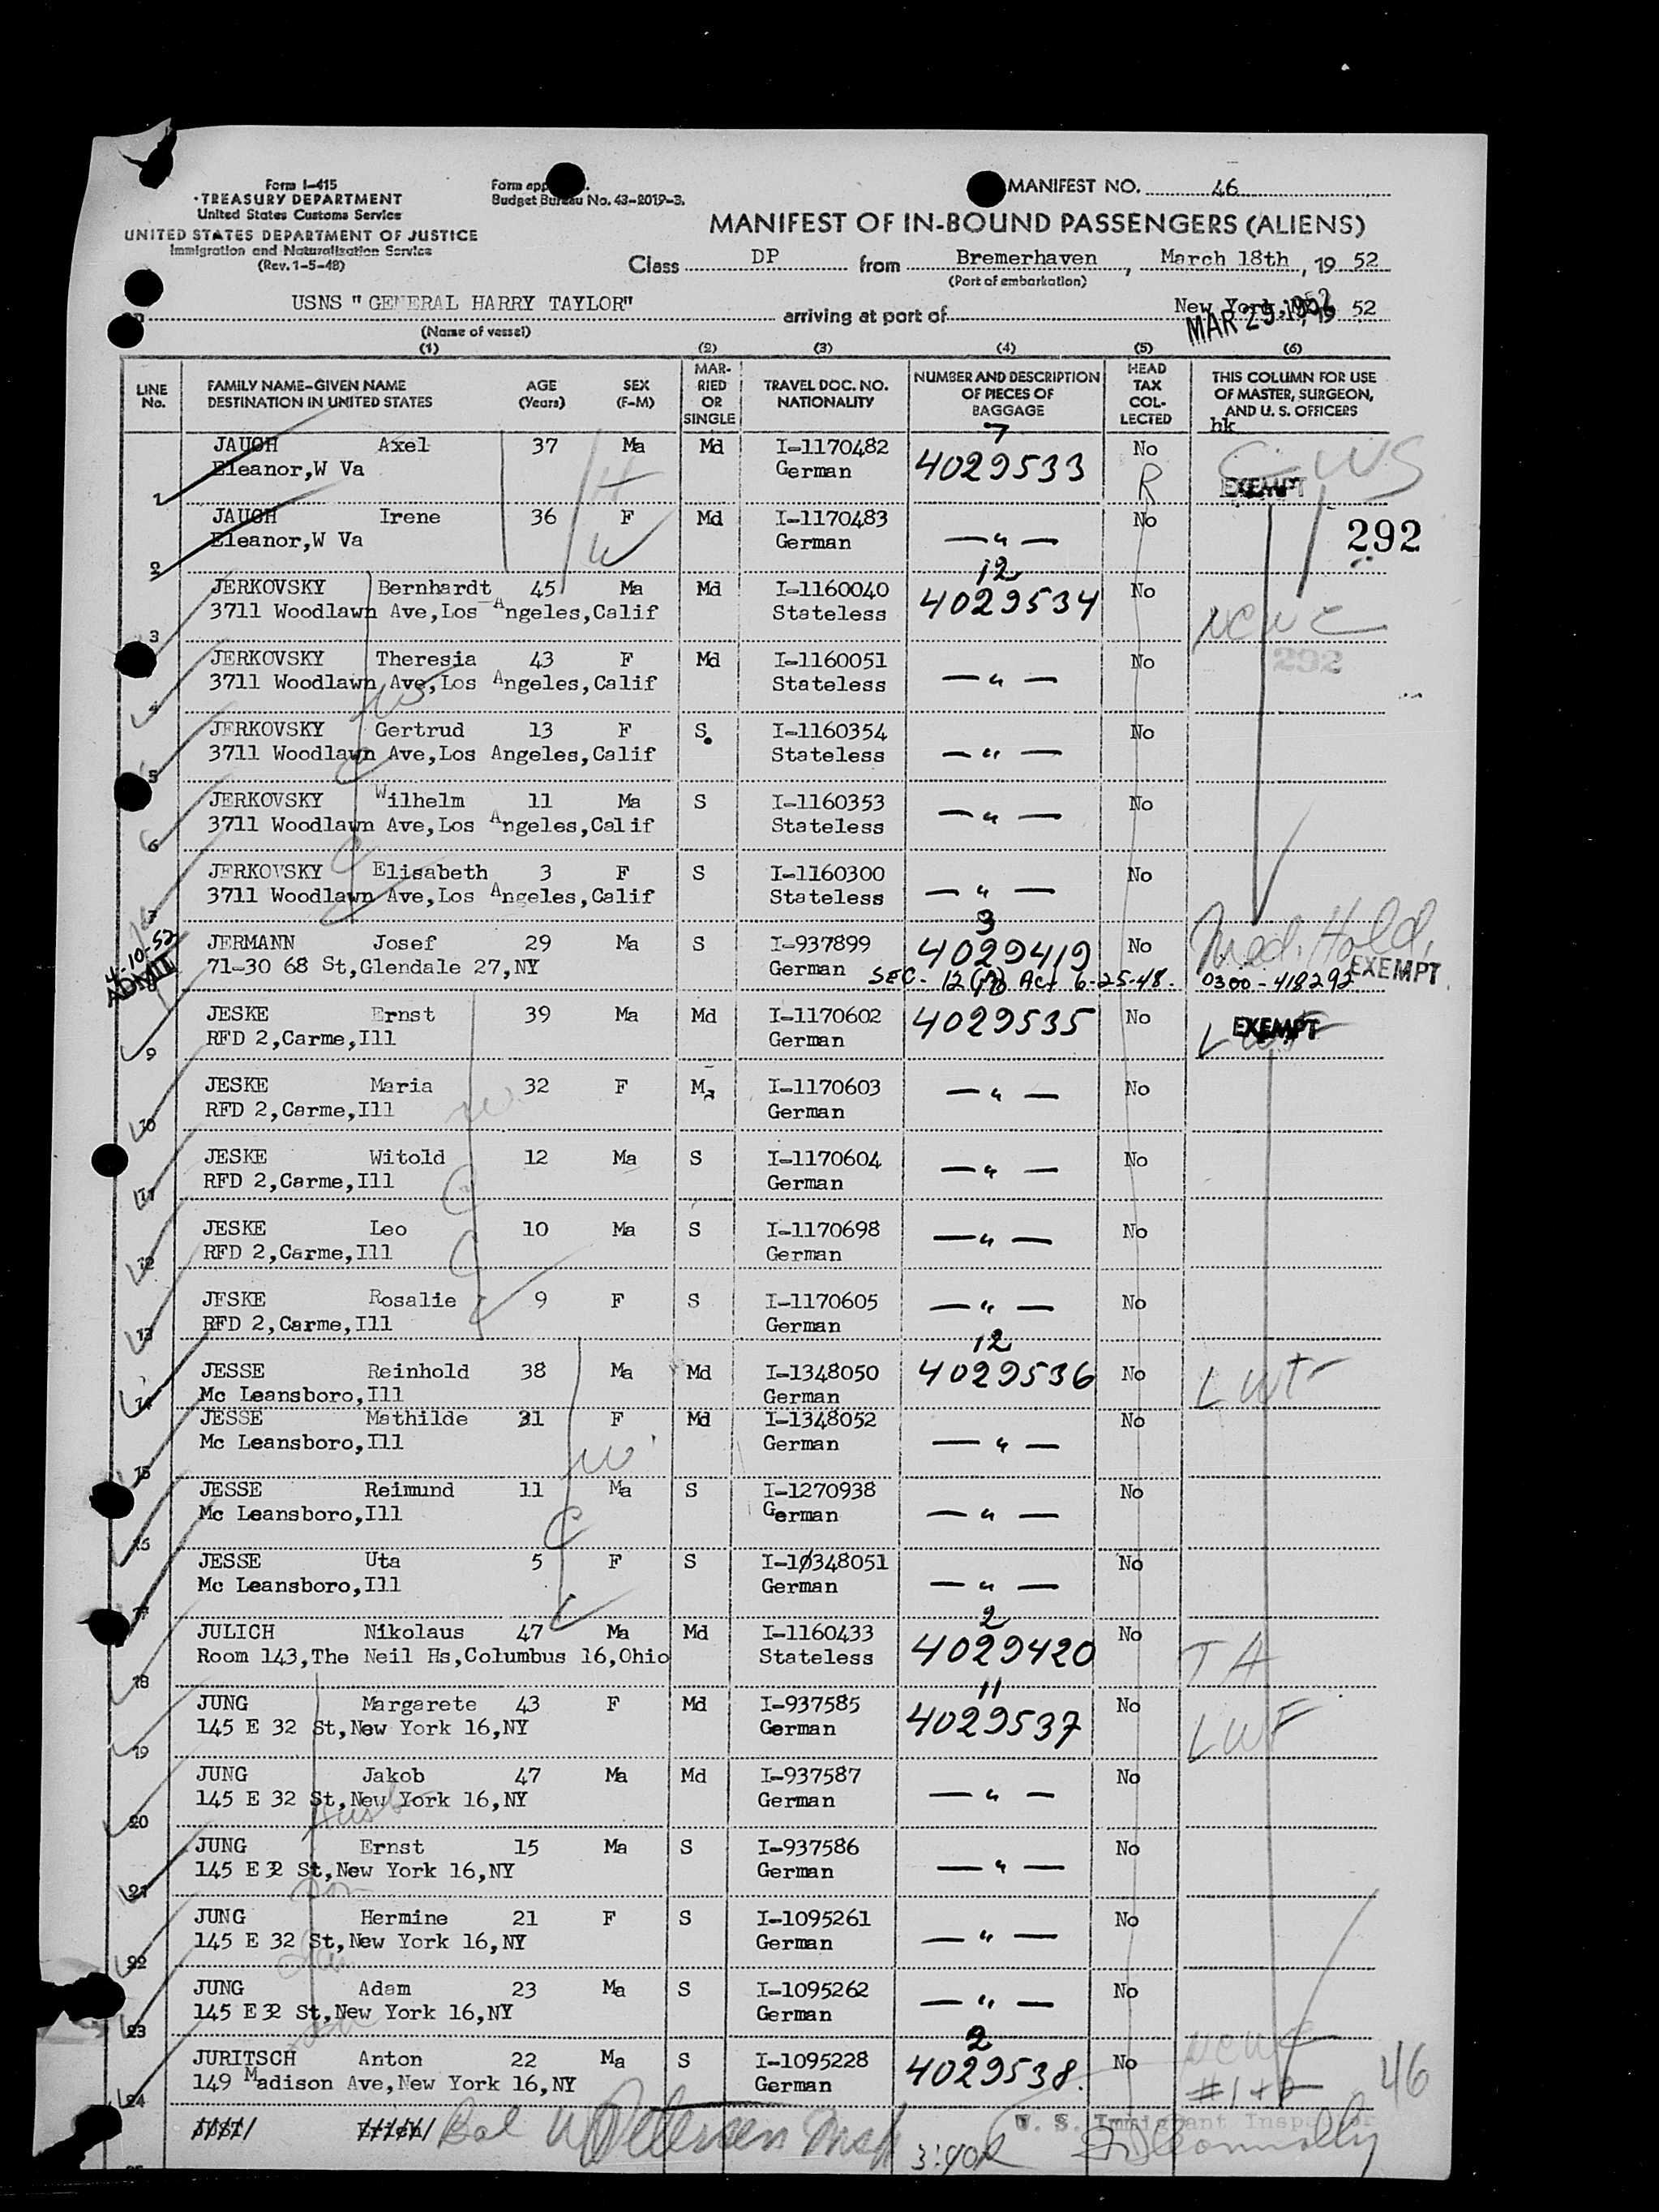 Form I-415
TREASURY DEPARTMENT
United States Customs Service
UNITED STATES DEPARTMENT OF JUSTICE
Immigration and Naturalization Service
(Rev. 1-5-48)
Form app
Budget Bureau No. 43-2019-3.
MANIFEST NO. 46
MANIFEST OF IN-BOUND PASSENGERS (ALIENS)
Class DP from Bremerhaven, March 18th, 19 52
(Port of embarkation)
USNS "GENERAL HARRY TAYLOR" arriving at port of New York, 19 52
MAR 29 1952
(Name of vessel)
(1) (2) (3) (4) (5) (6)
LINE No. FAMILY NAME-GIVEN NAME DESTINATION IN UNITED STATES AGE (Years) SEX (F-M) MARRIED OR SINGLE TRAVEL DOC. NO. NATIONALITY NUMBER AND DESCRIPTION OF PIECES OF BAGGAGE HEAD TAX COLLECTED THIS COLUMN FOR USE OF MASTER, SURGEON, AND U. S. OFFICERS
hk
7
1 JAUGH Axel 37 Ma Md I-1170482 4029533 No CWS
Eleanor,W Va H German R EXEMPT
2 JAUGH Irene 36 F Md I-1170483 —"— No 292
Eleanor,W Va W German
12
3 JERKOVSKY Bernhardt 45 Ma Md I-1160040 4029534 No
3711 Woodlawn Ave,Los Angeles,Calif Stateless NCWC
4 JERKOVSKY Theresia 43 F Md I-1160051 —"— No 292
3711 Woodlawn Ave,Los Angeles,Calif Stateless
W
5 JERKOVSKY Gertrud 13 F S. I-1160354 —"— No
3711 Woodlawn Ave,Los Angeles,Calif Stateless
C
6 JERKOVSKY Wilhelm 11 Ma S I-1160353 —"— No
3711 Woodlawn Ave,Los Angeles,Calif Stateless
C
7 JERKOVSKY Elisabeth 3 F S I-1160300 —"— No
3711 Woodlawn Ave,Los Angeles,Calif Stateless
C
3
4-10-52 JERMANN Josef 29 Ma S I-937899 4029419 No Med. Hold,
ADMIT 71-30 68 St,Glendale 27,NY German EXEMPT
SEC. 12 Act 6-25-48. 0300-418292
9 JESKE Ernst 39 Ma Md I-1170602 4029535 No EXEMPT
RFD 2,Carme,Ill German
10 JESKE Maria 32 F I-1170603 —"— No
RFD 2,Carme,Ill W German
11 JESKE Witold 12 Ma S I-1170604 —"— No
RFD 2,Carme,Ill C German
12 JESKE Leo 10 Ma S I-1170698 —"— No
RFD 2,Carme,Ill C German
13 JESKE Rosalie C 9 F S I-1170605 —"— No
RFD 2,Carme,Ill German
12
14 JESSE Reinhold 38 Ma Md I-1348050 4029536 No LWF
Mc Leansboro,Ill German
15 JESSE Mathilde 31 F Md I-1348052 —"— No
Mc Leansboro,Ill W German
16 JESSE Reimund 11 Ma S I-1270938 —"— No
Mc Leansboro,Ill C German
17 JESSE Uta 5 F S I-10348051 —"— No
Mc Leansboro,Ill C German
2
18 JULICH Nikolaus 47 Ma Md I-1160433 4029420 No TA
Room 143,The Neil Hs,Columbus 16,Ohio Stateless
11
19 JUNG Margarete 43 F Md I-937585 4029537 No LWF
145 E 32 St,New York 16,NY German
20 JUNG Jakob 47 Ma Md I-937587 —"— No
145 E 32 St,New York 16,NY German
Husb
21 JUNG Ernst 15 Ma S I-937586 —"— No
145 E 32 St,New York 16,NY German
Son
22 JUNG Hermine 21 F S I-1095261 —"— No
145 E 32 St,New York 16,NY German
23 JUNG Adam 23 Ma S I-1095262 —"— No
145 E 32 St,New York 16,NY German
2
24 JURITSCH Anton 22 Ma S I-1095228 4029538. No NCWC
149 Madison Ave,New York 16,NY German #1+2 46
Bal
U. S. Immigrant Inspector